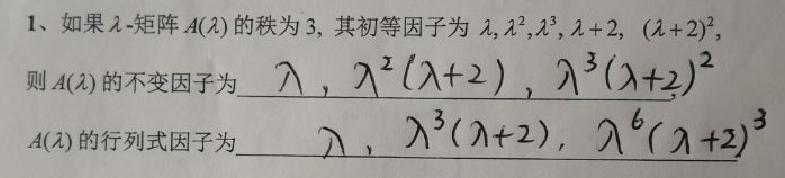 1、如果λ-矩阵A(λ)的秩为3, 其初等因子为 λ, λ², λ³, λ+2, (λ+2)²,
则A(λ)的不变因子为 λ , λ²(λ+2) , λ³(λ+2)²
A(λ)的行列式因子为 λ , λ³(λ+2), λ⁶(λ+2)³